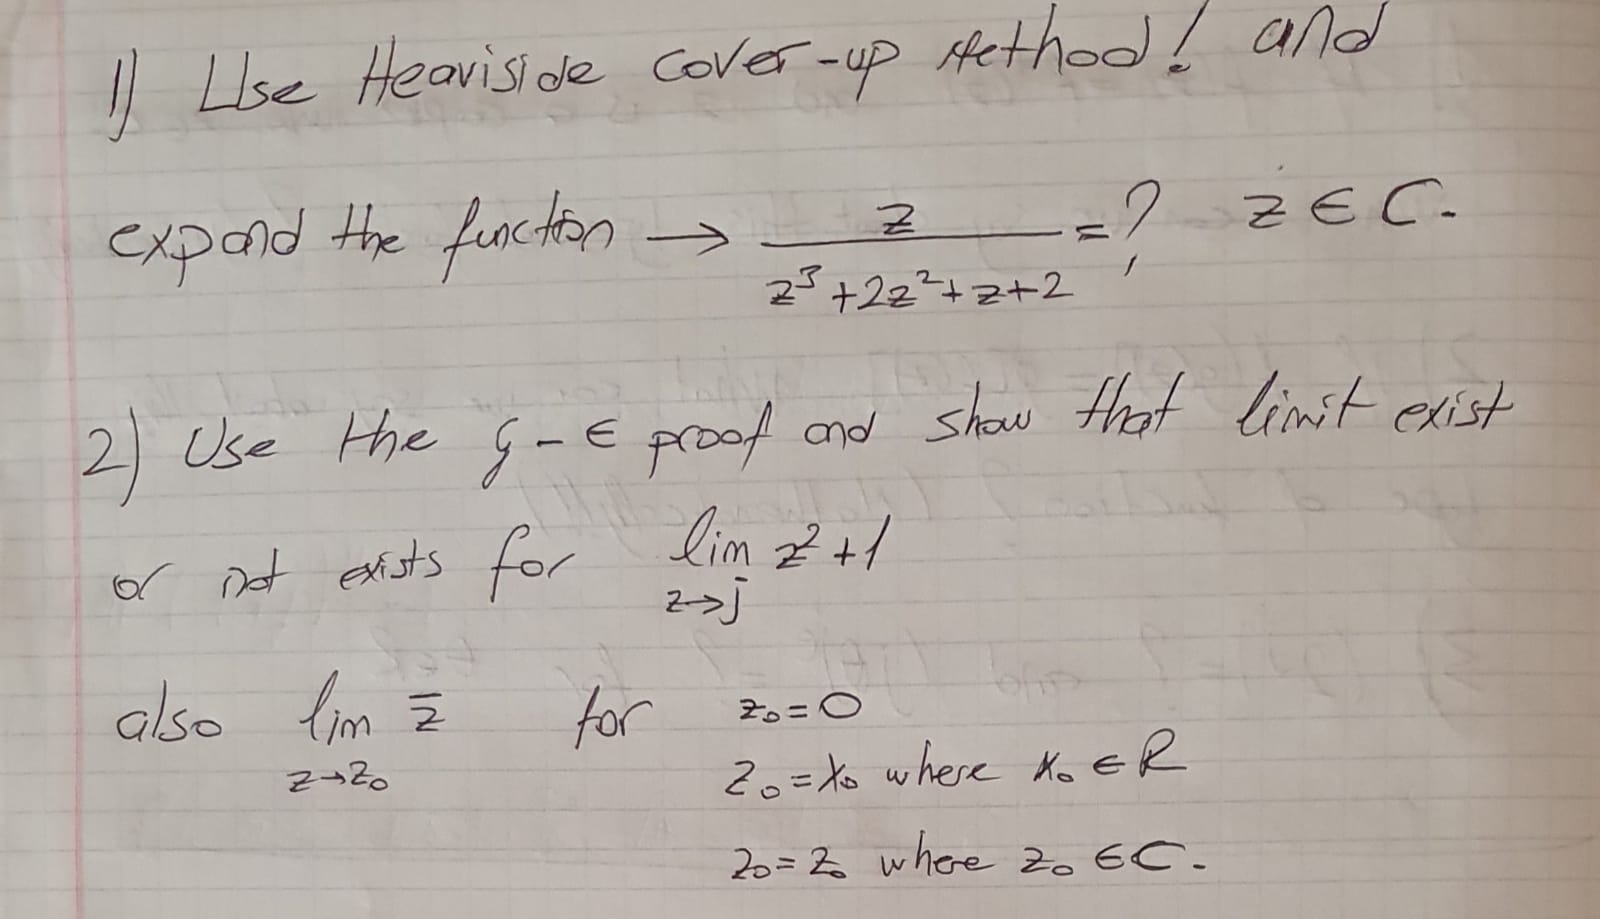 1) Use Heaviside cover-up Method! and
expand the function → z / (z³+2z²+z+2) = ? z ∈ C.
2) Use the ϛ-∈ proof and show that limit exist
or not exists for lim z²+1
z→j
also lim z̄ for z₀=0
z→z₀
z₀=x₀ where x₀ ∈ R
z₀=z₀ where z₀ ∈ C.